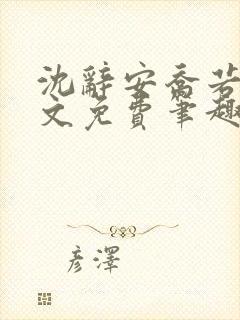 沈辭安喬若
文免費筆趣
彦澤